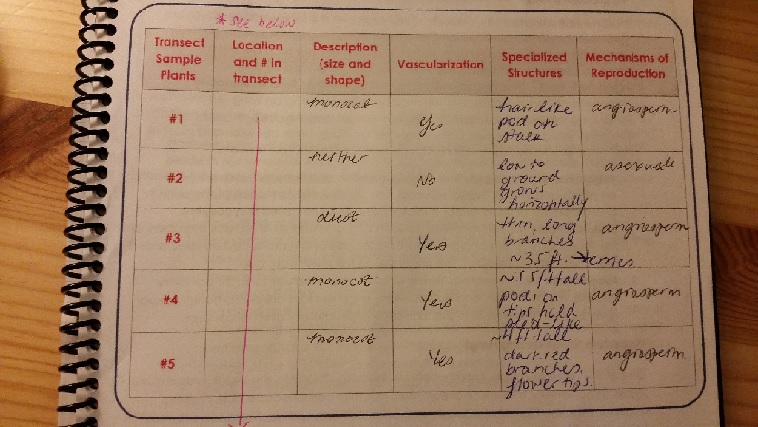 * see below
Transect Sample Plants
Location and # in transect
Description (size and shape)
Vascularization
Specialized Structures
Mechanisms of Reproduction
#1
monocot
Yes
hairlike
pod on
stalk
angiosperm
#2
neither
No
low to
ground
grows
horizontally
asexual
#3
dicot
Yes
thin, long
branches
~3.5 ft.
angiosperm
#4
monocot
Yes
pod on
tips hold
angiosperm
#5
monocot
Yes
~4 ft tall
dark red
branches,
flower tips.
angiosperm